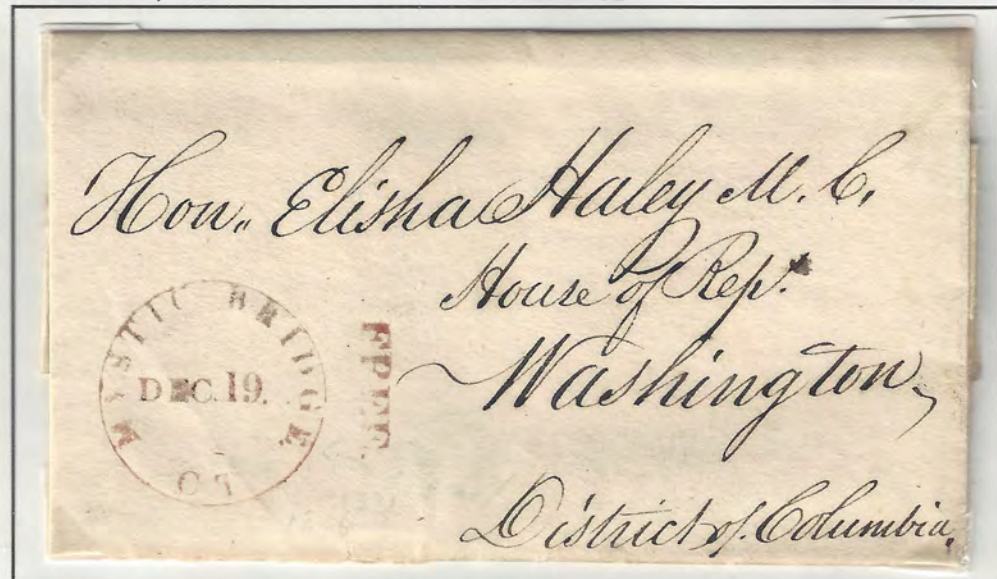 Hon. Elisha Haley M. C.
House of Rep.s
Washington,
District of Columbia.
MYSTIC BRIDGE
DEC. 19.
CT
FREE.